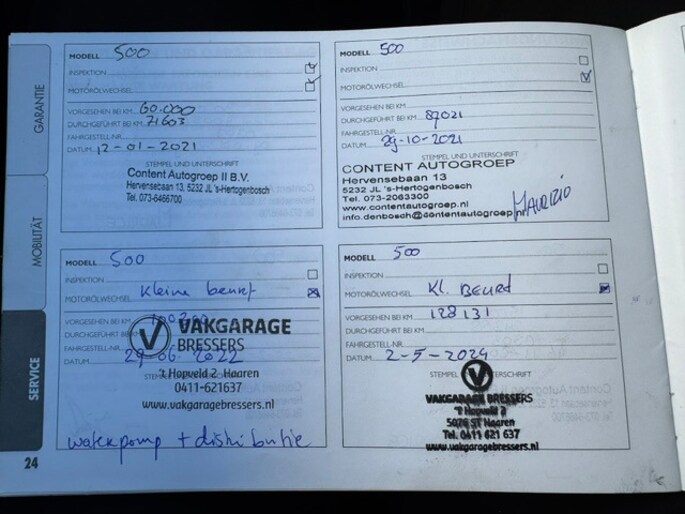 GARANTIE
MOBILITÄT
SERVICE
24
MODELL 500
INSPEKTION
MOTORÖLWECHSEL
VORGESEHEN BEI KM 60.000
DURCHGEFÜHRT BEI KM 71603
FAHRGESTELL-NR.
DATUM 12-01-2021
STEMPEL UND UNTERSCHRIFT
Content Autogroep II B.V.
Hervensebaan 13, 5232 JL 's-Hertogenbosch
Tel. 073-6466700
MODELL 500
INSPEKTION
MOTORÖLWECHSEL
VORGESEHEN BEI KM
DURCHGEFÜHRT BEI KM 87021
FAHRGESTELL-NR.
DATUM 29-10-2021
STEMPEL UND UNTERSCHRIFT
CONTENT AUTOGROEP
Hervensebaan 13
5232 JL 's-Hertogenbosch
Tel. 073-2063300
www.contentautogroep.nl
info.denbosch@contentautogroep.nl
MAURIZIO
MODELL 500
INSPEKTION
MOTORÖLWECHSEL kleine beurt
VORGESEHEN BEI KM
DURCHGEFÜHRT BEI KM
FAHRGESTELL-NR.
DATUM 29-06-2022
STEMPEL
VAKGARAGE
BRESSERS
't Hopveld 2 Haaren
0411-621637
www.vakgaragebressers.nl
waterpomp + distributie
MODELL 500
INSPEKTION
MOTORÖLWECHSEL Kl. BEURT
VORGESEHEN BEI KM 128131
DURCHGEFÜHRT BEI KM
FAHRGESTELL-NR.
DATUM 2-5-2024
STEMPEL UNTERSCHRIFT
VAKGARAGE BRESSERS
't Hopveld 2
5076 ST Haaren
Tel. 0411 621 637
www.vakgaragebressers.nl